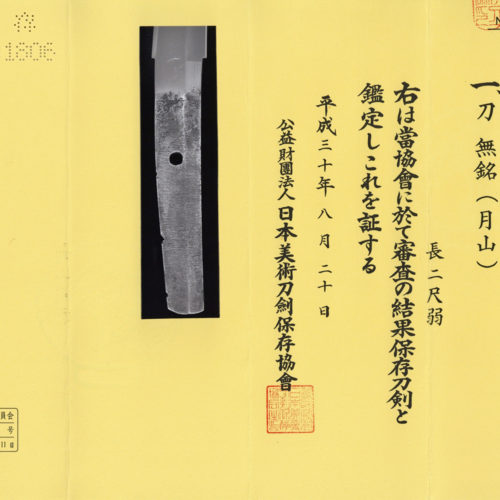 一、刀 無銘（月山）
長二尺弱
右は當協會に於て審査の結果保存刀剣と
鑑定しこれを証する
平成三十年八月二十日
公益財團法人日本美術刀劍保存協會
1806
員会
号